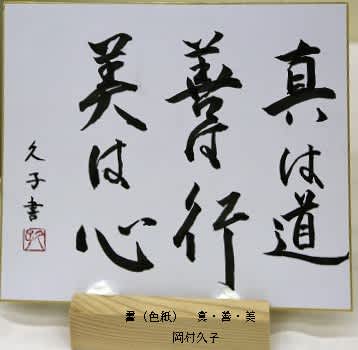 真は道
善は行
美は心
久子書
書（色紙）　真・善・美
岡村久子